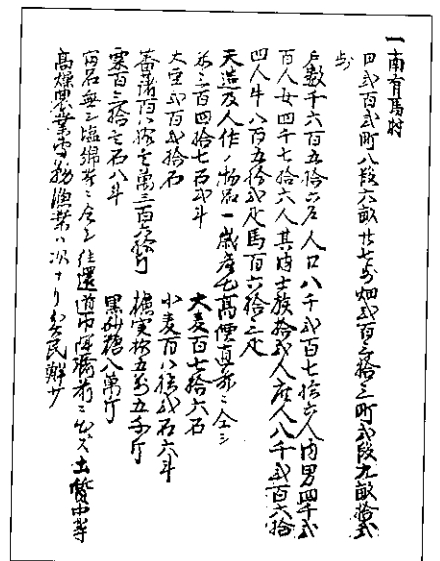 一南有馬村
田弐百弐町八段六畝廿七歩畑弐百三拾三町弐段九畝拾弐
歩
戸数千六百五拾六戸人口八千弐百七拾六人内男四千弐
百人女四千七拾六人其内士族拾弐人産人八千弐百六拾
四人牛八百五拾弐疋馬百六拾三疋
天造及人作ノ物品一歳産出高價直
米三百四拾七石弐斗
大麦百七拾六石
大豆弐百弐拾石
小麦百八拾弐石六斗
蕃藷百八拾壱萬三百六拾斤
櫨実拾五万五千斤
粟百三拾壱石八斗
黒砂糖八萬斤
往還道
土質中等
高燥農業専務漁業ハ次ナリ